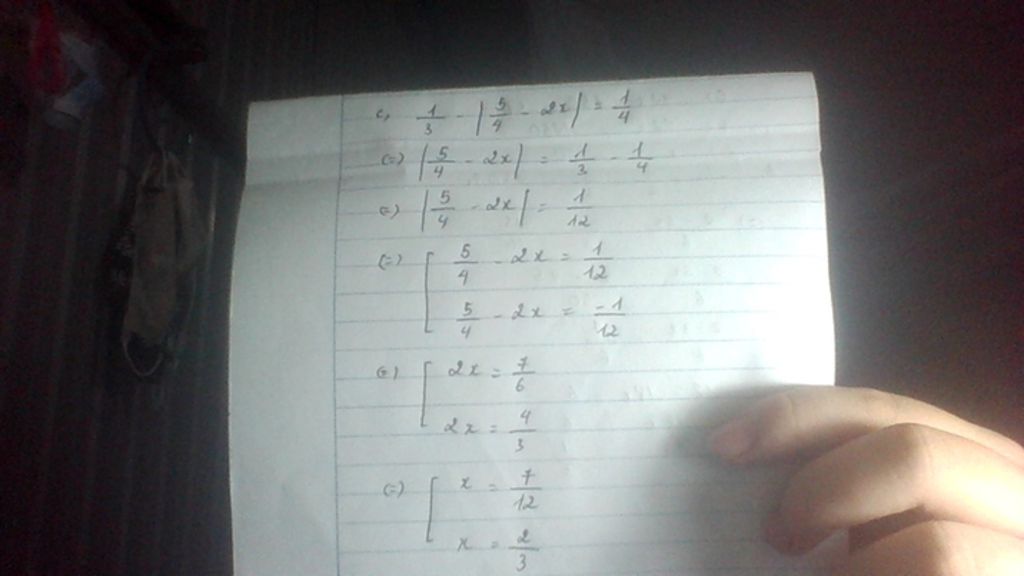 c, 1/3 - |5/4 - 2x| = 1/4
(=) |5/4 - 2x| = 1/3 - 1/4
(=) |5/4 - 2x| = 1/12
(=) [ 5/4 - 2x = 1/12
5/4 - 2x = -1/12
(=) [ 2x = 7/6
2x = 4/3
(=) [ x = 7/12
x = 2/3